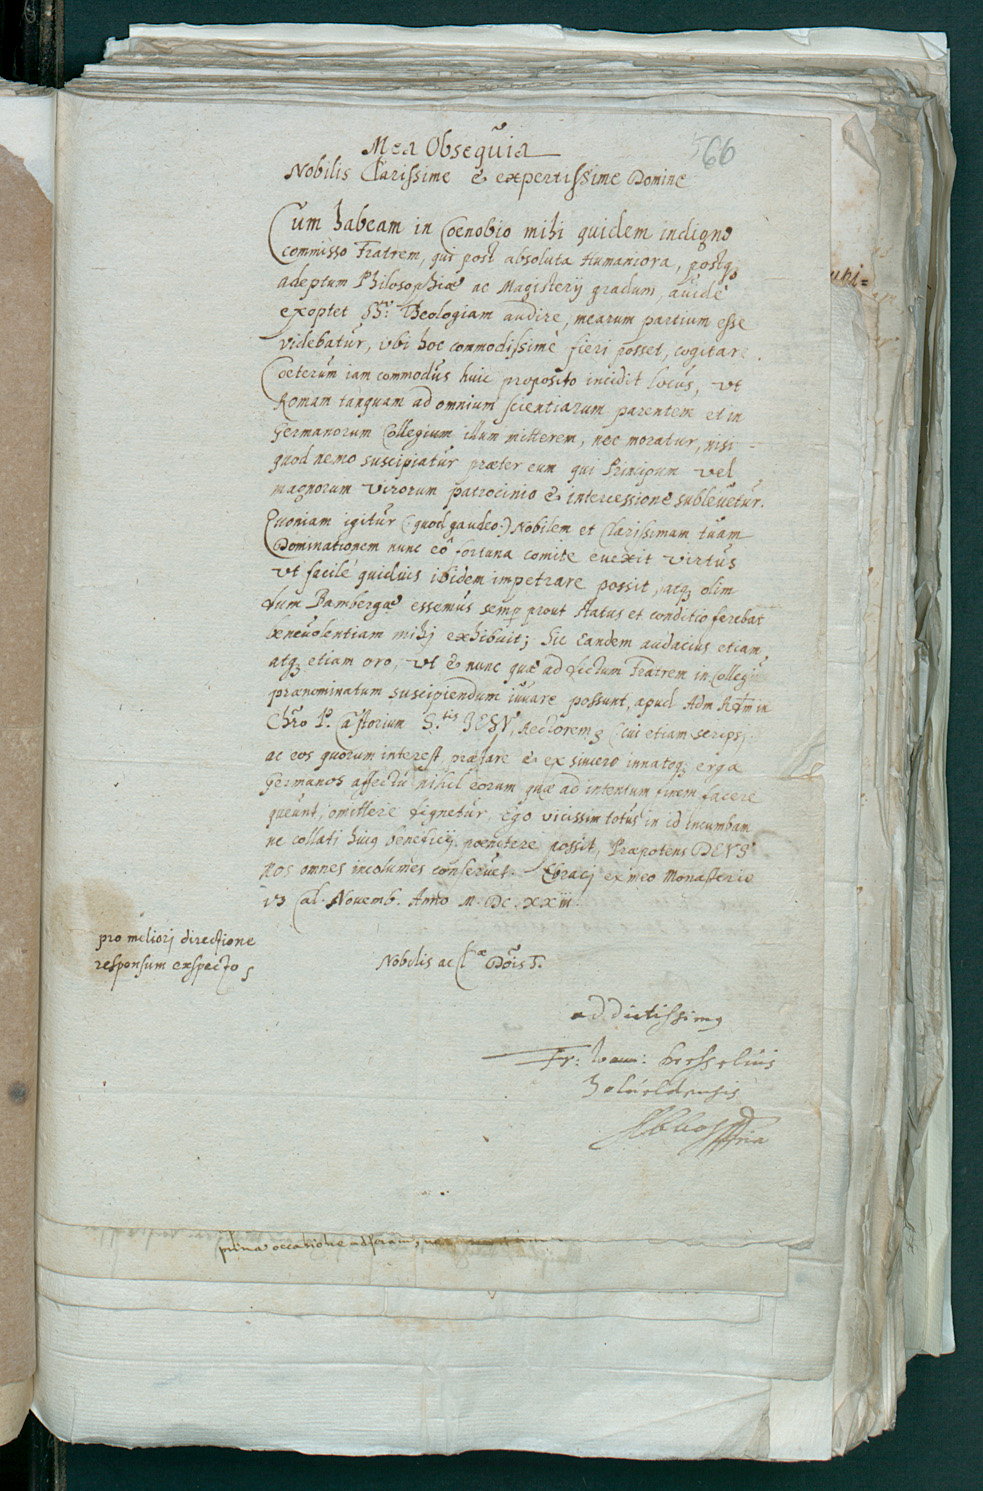 566
Mea Obsequia
Nobilis Clarissime & expertissime Domine
Cum habeam in Coenobio mihi quidem indigno
commisso Fratrem, qui post absoluta Humaniora, postq;
adeptum Philosophiæ ac Magisterij gradum, auidè
exoptet SS: Theologiam audire, mearum partium esse
videbatur, vbi hoc commodissimè fieri posset, cogitare.
Coeterùm iam commodus huic proposito incidit locus, vt
Romam tanquam ad omnium scientiarum parentem et in
Germanorum Collegium illum mitterem, nec moratur, nisi
quod nemo suscipiatur præter eum qui Principum vel
magnorum virorum patrocinio & intercessione subleuetur.
Quoniam igitur (: quod gaudeo :) Nobilem et Clarissimam tuam
Dominationem nunc eò fortuna comite euexit virtus
vt facilè quiduis ibidem impetrare possit, atq; olim
dum Bambergæ essemus semp prout status et conditio ferebat
beneuolentiam mihj exhibuit; Sic Eandem audacius etiam
atq; etiam oro, vt & nunc quæ ad dictum Fratrem in Collegiu
prænominatum suscipiendum iuuare possunt, apud Adm Rdm in
Chro P. Castorium S.tis JESV, Rectorem (cui etiam scripsj
ac eos quorum interest præstare & ex sincero innatoq; erga
Germanos affectu nihil eorum quæ ad intentum finem facere
queunt, omittere dignetur, Ego vicissim totus in id incumbam
ne collati huiq beneficij poenitere possit, Præpotens DEVS
nos omnes incolumes conseruet. Ebracj ex meo Monasterio
Cal. Nouemb. Anno M. DC. XXIII.
pro meliorj directione
responsum exspecto
Nobilis ac Cl.æ Dõis T.
addictissimq
Fr: Joan: Dresselius
Holueldensis
Abbas
prima occasione